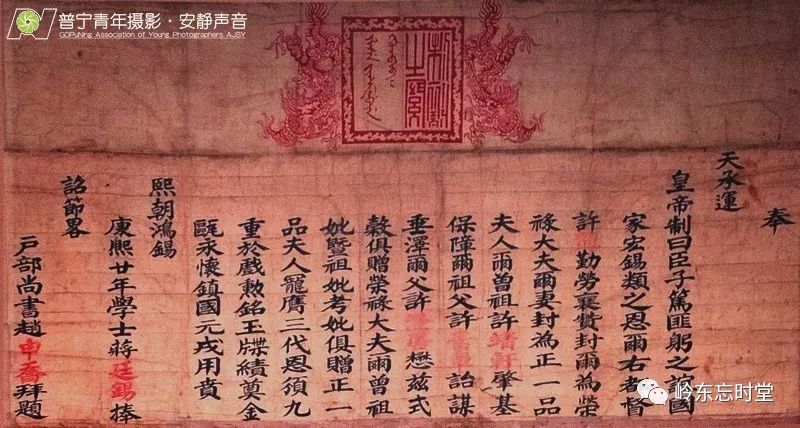 普宁青年摄影·安静声音
GDPUNing Association of Young Photographers AJSY
制誥之寶
奉
天承運
皇帝制曰臣子篤匪躬之誼國
家宏錫類之恩爾右者督
許勤勞襄贊封爾為榮
祿大夫爾妻封為正一品
夫人爾曾祖許靖軒肇基
保障爾祖父許詒謀
垂澤爾父許懋茲式
穀俱贈榮祿大夫爾曾祖
妣暨祖妣考妣俱贈正一
品夫人寵膺三代恩須九
重於戲勲銘玉牒績奠金
甌永懷鎮國元戎用賁
熙朝鴻錫
康熙廿年學士蔣廷錫捧
詔節畧
戶部尚書趙申喬拜題
岭东忘时堂